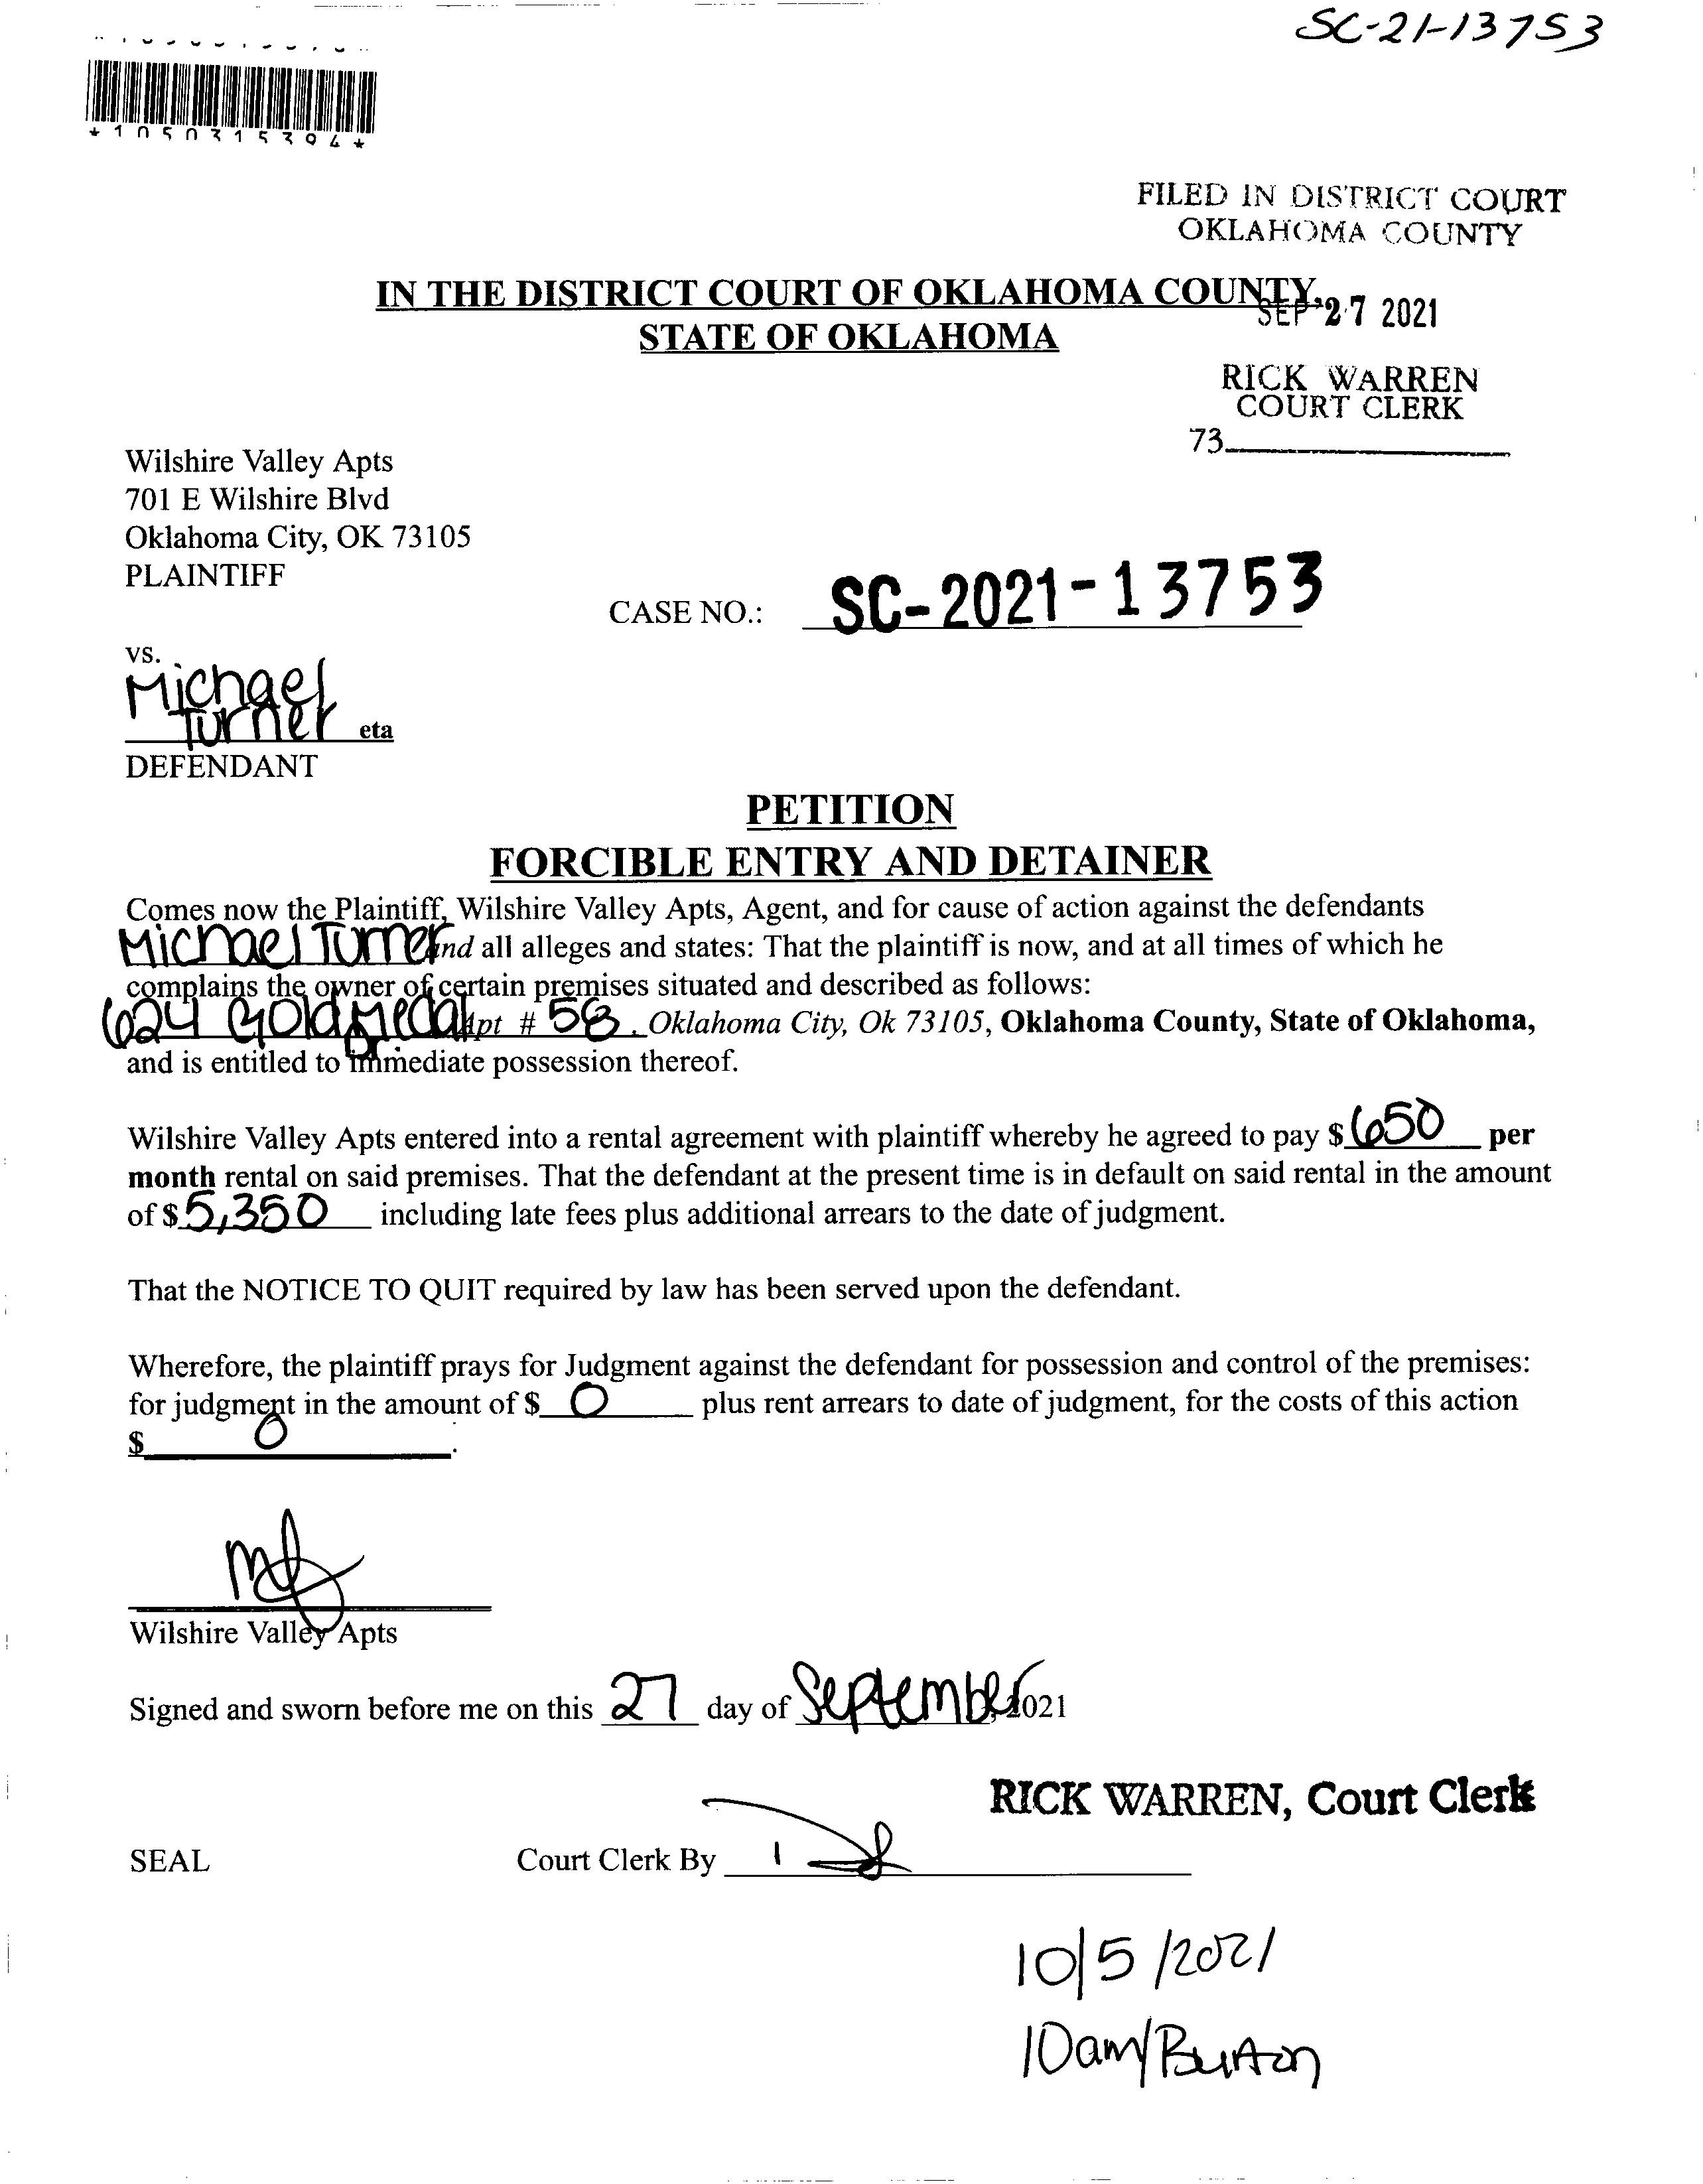 SC-21-13753
*1050315394*
FILED IN DISTRICT COURT
OKLAHOMA COUNTY
IN THE DISTRICT COURT OF OKLAHOMA COUNTY,
STATE OF OKLAHOMA
SEP 27 2021
RICK WARREN
COURT CLERK
73
Wilshire Valley Apts
701 E Wilshire Blvd
Oklahoma City, OK 73105
PLAINTIFF
CASE NO.: SC-2021-13753
vs.
Michael
Turner eta
DEFENDANT
PETITION
FORCIBLE ENTRY AND DETAINER
Comes now the Plaintiff, Wilshire Valley Apts, Agent, and for cause of action against the defendants
Michael Turner and all alleges and states: That the plaintiff is now, and at all times of which he
complains the owner of certain premises situated and described as follows:
624 Gold Medal Apt # 58 . Oklahoma City, Ok 73105, Oklahoma County, State of Oklahoma,
and is entitled to immediate possession thereof.
Wilshire Valley Apts entered into a rental agreement with plaintiff whereby he agreed to pay $ 650 per
month rental on said premises. That the defendant at the present time is in default on said rental in the amount
of $ 5,350 including late fees plus additional arrears to the date of judgment.
That the NOTICE TO QUIT required by law has been served upon the defendant.
Wherefore, the plaintiff prays for Judgment against the defendant for possession and control of the premises:
for judgment in the amount of $ 0 plus rent arrears to date of judgment, for the costs of this action
$ 0 .
Wilshire Valley Apts
Signed and sworn before me on this 27 day of September, 2021
RICK WARREN, Court Clerk
SEAL Court Clerk By
10/5/2021
10am/Burton